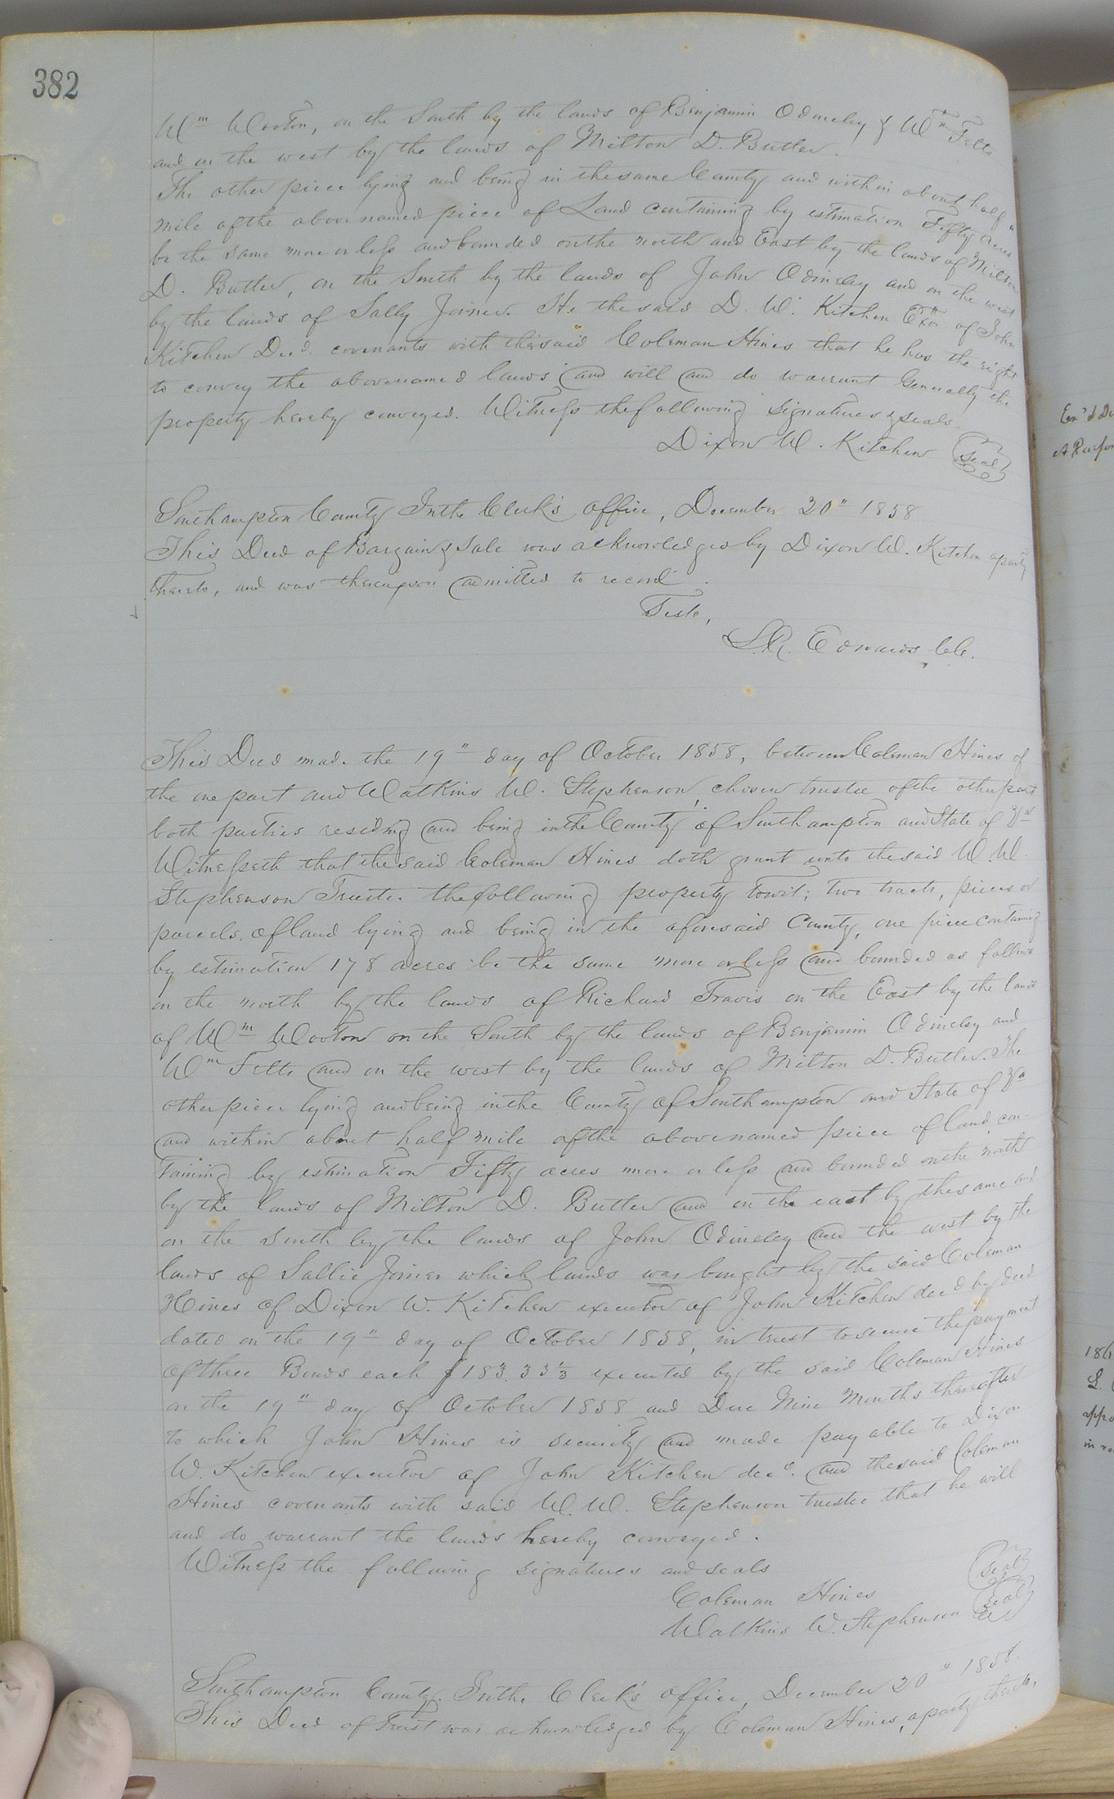 382
Wm Wooton, on the South by the lands of Benjamin Odmeley & Wm Felts
and on the west by the lands of Milton D. Butler.
The other piece lying and being in the same County and within about half a
mile of the above named piece of Land containing by estimation Fifty Acres
be the same more or less and bounded on the north and East by the lands of Milton
D. Butler, on the South by the lands of John Odineley and on the west
by the lands of Sally Joiner. He the said D. W. Kitchen Exor of John
Kitchen Decd. covenants with the said Coleman Hines that he has the right
to convey the abovenamed lands and will and do warrant Generally the
property hereby conveyed. Witness the following signatures & seals.
Dixon W. Kitchen Seal
Southampton County In the Clerk's office, December 20" 1858
This Deed of Bargain & Sale was acknowledged by Dixon W. Kitchen a party
thereto, and was thereupon admitted to record.
Teste,
L.R. Edwards CC.
This Deed made the 19" day of October 1858, between Coleman Hines of
the one part and Watkins W. Stephenson, chosen trustee of the other part
both parties residing and being in the County of Southampton and State of Va
Witnesseth that the said Coleman Hines doth grant unto the said W. W.
Stephenson Trustee the following property towit; two tracts, pieces or
parcels, of land lying and being in the aforesaid County, one piece containing
by estimation 178 acres be the same more or less and bounded as follows
on the north by the lands of Richard Travis on the East by the lands
of Wm Wooton on the South by the lands of Benjamin Odineley and
Wm Felts and on the west by the lands of Milton D. Butler. The
other piece lying and being in the County of Southampton and State of Va
and within about half mile of the above named piece of land con-
taining by estimation Fifty acres more or less and bounded on the north
by the lands of Milton D. Butler and on the east by the same and
on the South by the lands of John Odineley and the west by the
lands of Sallie Joiner which lands was bought by the said Coleman
Hines of Dixon W. Kitchen executor of John Kitchen decd by deed
dated on the 19" day of October 1858, in trust to secure the payment
of three Bonds each $183.33⅓ executed by the said Coleman Hines
on the 19" day of October 1858 and Due Nine Months thereafter
to which John Hines is security and made payable to Dixon
W. Kitchen executor of John Kitchen decd. and the said Coleman
Hines covenants with said W. W. Stephenson trustee that he will
and do warrant the lands hereby conveyed.
Witness the following signatures and seals
Coleman Hines Seal
Watkins W. Stephenson Seal
Southampton County. In the Clerk's office, December 20" 1858.
This Deed of Trust was acknowledged by Coleman Hines, a party thereto,